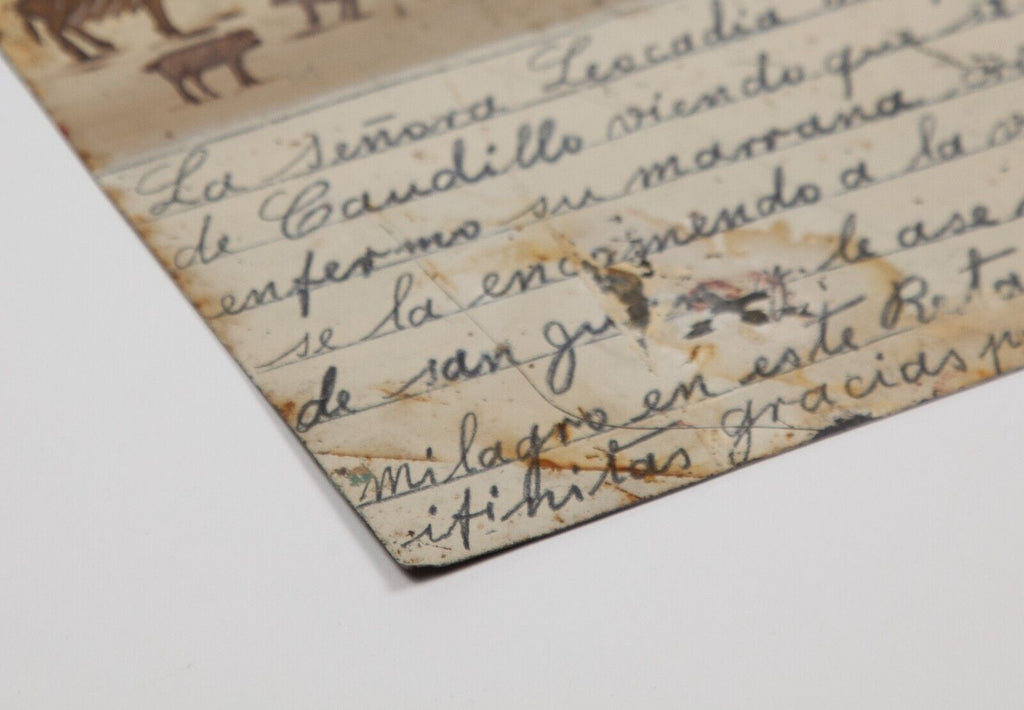 La señora Leocadia
de Caudillo viendo que se
enfermo su marrana
se la encomendo a la
de san Juan y le
milagro en este
itinitas gracias